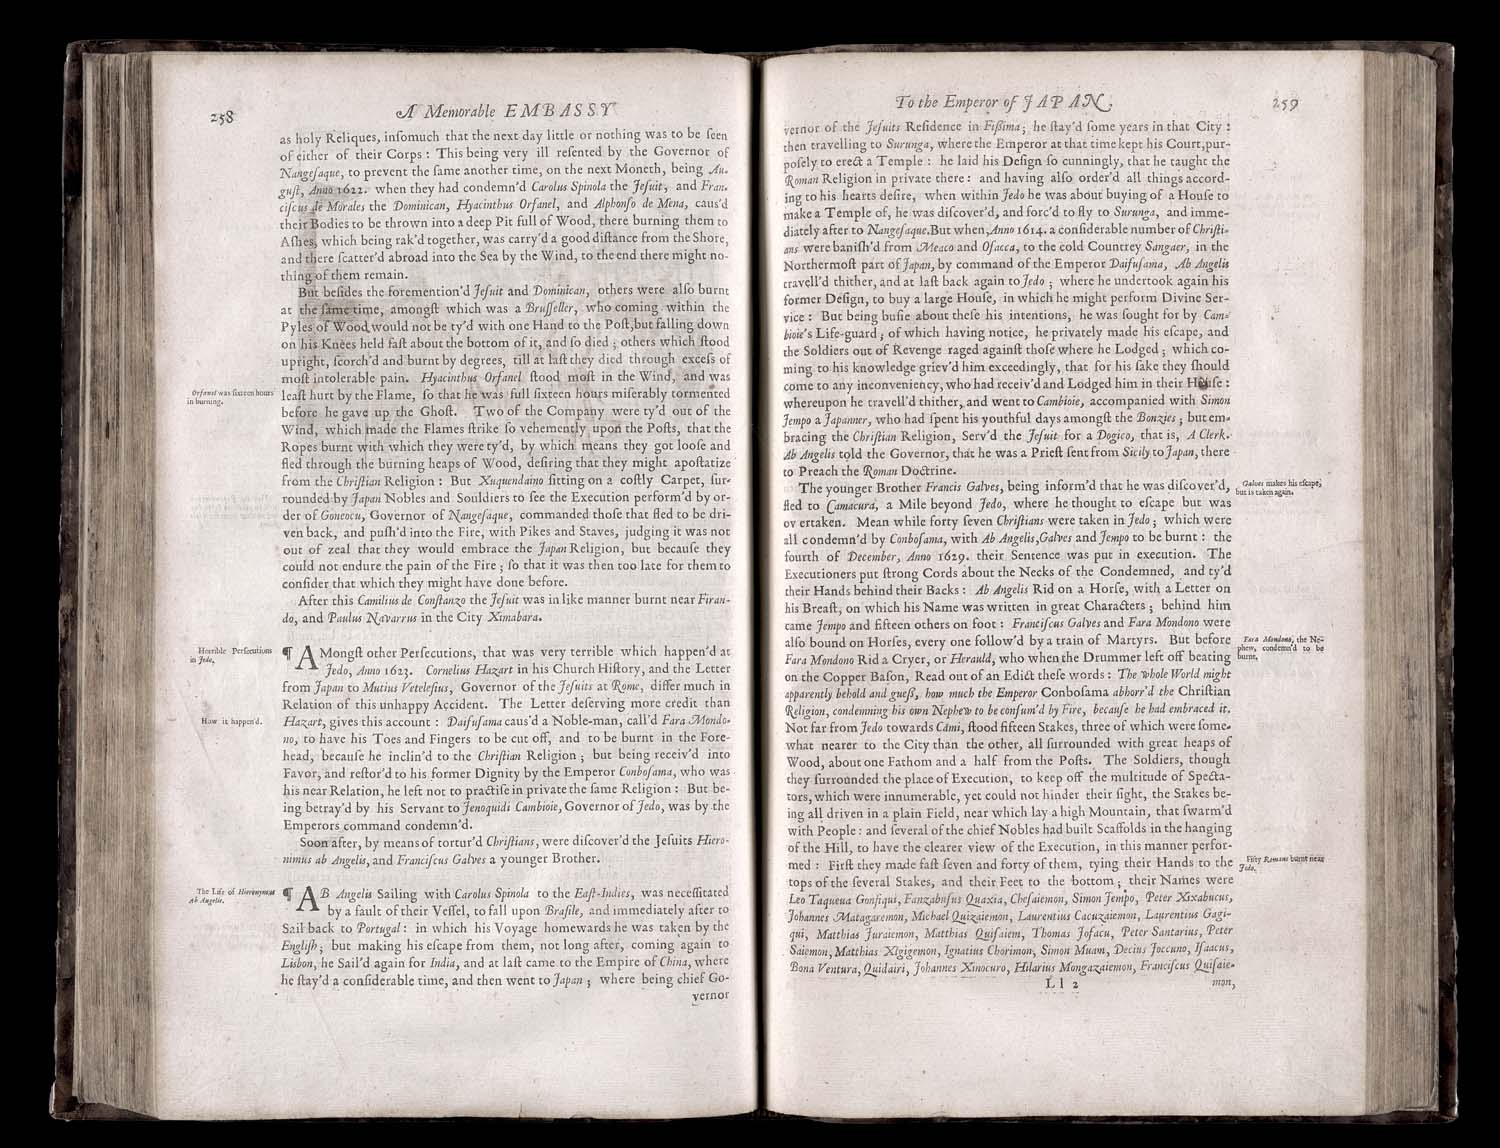 258
A Memorable EMBASSY
as holy Reliques, inſomuch that the next day little or nothing was to be ſeen
of either of their Corps : This being very ill reſented by the Governor of
Nangeſaque, to prevent the ſame another time, on the next Moneth, being Au-
guſt, Anno 1622. when they had condemn'd Carolus Spinola the Jeſuit, and Fran-
ciſcus de Morales the Dominican, Hyacinthus Orfanel, and Alphonſo de Mena, caus'd
their Bodies to be thrown into a deep Pit full of Wood, there burning them to
Aſhes, which being rak'd together, was carry'd a good diſtance from the Shore,
and there ſcatter'd abroad into the Sea by the Wind, to the end there might no-
thing of them remain.
But beſides the foremention'd Jeſuit and Dominican, others were alſo burnt
at the ſame time, amongſt which was a Bruſſeller, who coming within the
Pyles of Wood, would not be ty'd with one Hand to the Poſt, but falling down
on his Knees held faſt about the bottom of it, and ſo died ; others which ſtood
upright, ſcorch'd and burnt by degrees, till at laſt they died through exceſs of
moſt intolerable pain. Hyacinthus Orfanel ſtood moſt in the Wind, and was
Orfanel was ſixteen hours
in burning.
leaſt hurt by the Flame, ſo that he was full ſixteen hours miſerably tormented
before he gave up the Ghoſt. Two of the Company were ty'd out of the
Wind, which made the Flames ſtrike ſo vehemently upon the Poſts, that the
Ropes burnt with which they were ty'd, by which means they got looſe and
fled through the burning heaps of Wood, deſiring that they might apoſtatize
from the Chriſtian Religion : But Xuquendaino ſitting on a coſtly Carpet, ſur-
rounded by Japan Nobles and Souldiers to ſee the Execution perform'd by or-
der of Goncocu, Governor of Nangeſaque, commanded thoſe that fled to be dri-
ven back, and puſh'd into the Fire, with Pikes and Staves, judging it was not
out of zeal that they would embrace the Japan Religion, but becauſe they
could not endure the pain of the Fire ; ſo that it was then too late for them to
conſider that which they might have done before.
After this Camilius de Conſtanzo the Jeſuit was in like manner burnt near Firan-
do, and Paulus Navarrus in the City Ximabara.
Horrible Perſecutions
in Jedo.
¶ AMongſt other Perſecutions, that was very terrible which happen'd at
Jedo, Anno 1623. Cornelius Hazart in his Church Hiſtory, and the Letter
from Japan to Mutius Veteleſius, Governor of the Jeſuits at Rome, differ much in
Relation of this unhappy Accident. The Letter deſerving more credit than
How it happen'd.
Hazart, gives this account : Daifuſama caus'd a Noble-man, call'd Fara Mondo-
no, to have his Toes and Fingers to be cut off, and to be burnt in the Fore-
head, becauſe he inclin'd to the Chriſtian Religion ; but being receiv'd into
Favor, and reſtor'd to his former Dignity by the Emperor Conboſama, who was
his near Relation, he left not to practiſe in private the ſame Religion : But be-
ing betray'd by his Servant to Jenoquidi Cambioie, Governor of Jedo, was by the
Emperors command condemn'd.
Soon after, by means of tortur'd Chriſtians, were diſcover'd the Jeſuits Hiero-
nimus ab Angelis, and Franciſcus Galves a younger Brother.
The Life of Hieronymus
Ab Angelis.
¶ AB Angelis Sailing with Carolus Spinola to the Eaſt-Indies, was neceſſitated
by a fault of their Veſſel, to fall upon Braſile, and immediately after to
Sail back to Portugal : in which his Voyage homewards he was taken by the
Engliſh ; but making his eſcape from them, not long after, coming again to
Lisbon, he Sail'd again for India, and at laſt came to the Empire of China, where
he ſtay'd a conſiderable time, and then went to Japan ; where being chief Go-
vernor
To the Emperor of JAPAN.
259
vernor of the Jeſuits Reſidence in Fiſſima ; he ſtay'd ſome years in that City :
then travelling to Surunga, where the Emperor at that time kept his Court, pur-
poſely to erect a Temple : he laid his Deſign ſo cunningly, that he taught the
Roman Religion in private there : and having alſo order'd all things accord-
ing to his hearts deſire, when within Jedo he was about buying of a Houſe to
make a Temple of, he was diſcover'd, and forc'd to fly to Surunga, and imme-
diately after to Nangeſaque. But when, Anno 1614. a conſiderable number of Chriſti-
ans were baniſh'd from Meaco and Oſacca, to the cold Countrey Sangaer, in the
Northermoſt part of Japan, by command of the Emperor Daifuſama, Ab Angelis
travell'd thither, and at laſt back again to Jedo ; where he undertook again his
former Deſign, to buy a large Houſe, in which he might perform Divine Ser-
vice : But being buſie about theſe his intentions, he was ſought for by Cam-
bioie's Life-guard ; of which having notice, he privately made his eſcape, and
the Soldiers out of Revenge raged againſt thoſe where he Lodged ; which co-
ming to his knowledge griev'd him exceedingly, that for his ſake they ſhould
come to any inconveniency, who had receiv'd and Lodged him in their Houſe :
whereupon he travell'd thither, and went to Cambioie, accompanied with Simon
Jempo a Japanner, who had ſpent his youthful days amongſt the Bonzies ; but em-
bracing the Chriſtian Religion, Serv'd the Jeſuit for a Dogico, that is, A Clerk.
Ab Angelis told the Governor, that he was a Prieſt ſent from Sicily to Japan, there
to Preach the Roman Doctrine.
The younger Brother Francis Galves, being inform'd that he was diſcover'd,
Galves makes his eſcape,
but is taken again.
fled to Camacura, a Mile beyond Jedo, where he thought to eſcape but was
overtaken. Mean while forty ſeven Chriſtians were taken in Jedo ; which were
all condemn'd by Conboſama, with Ab Angelis, Galves and Jempo to be burnt : the
fourth of December, Anno 1629. their Sentence was put in execution. The
Executioners put ſtrong Cords about the Necks of the Condemned, and ty'd
their Hands behind their Backs : Ab Angelis Rid on a Horſe, with a Letter on
his Breaſt, on which his Name was written in great Characters ; behind him
came Jempo and fifteen others on foot : Franciſcus Galves and Fara Mondono were
alſo bound on Horſes, every one follow'd by a train of Martyrs. But before
Fara Mondono, the Ne-
phew, condemn'd to be
burnt.
Fara Mondono Rid a Cryer, or Herauld, who when the Drummer left off beating
on the Copper Baſon, Read out of an Edict theſe words : The whole World might
apparently behold and gueſs, how much the Emperor Conboſama abhorr'd the Chriſtian
Religion, condemning his own Nephew to be conſum'd by Fire, becauſe he had embraced it.
Not far from Jedo towards Cami, ſtood fifteen Stakes, three of which were ſome-
what nearer to the City than the other, all ſurrounded with great heaps of
Wood, about one Fathom and a half from the Poſts. The Soldiers, though
they ſurrounded the place of Execution, to keep off the multitude of Specta-
tors, which were innumerable, yet could not hinder their ſight, the Stakes be-
ing all driven in a plain Field, near which lay a high Mountain, that ſwarm'd
with People : and ſeveral of the chief Nobles had built Scaffolds in the hanging
of the Hill, to have the clearer view of the Execution, in this manner perfor-
med : Firſt they made faſt ſeven and forty of them, tying their Hands to the
Fifty Romans burnt near
Jedo.
tops of the ſeveral Stakes, and their Feet to the bottom ; their Names were
Leo Taqueua Gonſiqui, Fanzabuſus Quaxia, Cheſaiemon, Simon Jempo, Peter Xixabucus,
Johannes Matagaremon, Michael Quizaiemon, Laurentius Cacuzaiemon, Laurentius Gagi-
qui, Matthias Juraiemon, Matthias Quiſaiem, Thomas Joſacu, Peter Santarius, Peter
Saiemon, Matthias XIgigemon, Ignatius Chorimon, Simon Muam, Decius Joccuno, Iſaacus,
Bona Ventura, Quidairi, Johannes Xinocuro, Hilarius Mongazaiemon, Franciſcus Quiſaie-
Ll 2
mon,